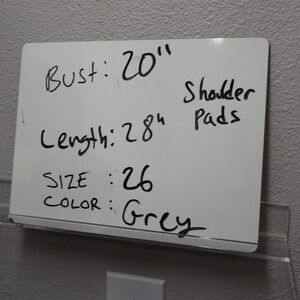 Bust: 20"
Shoulder
Pads
Length: 28"
SIZE : 26
COLOR : Grey